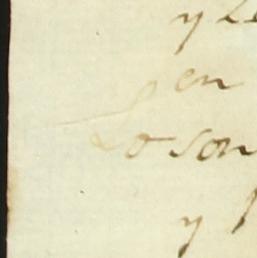 y
en
Lo son
y